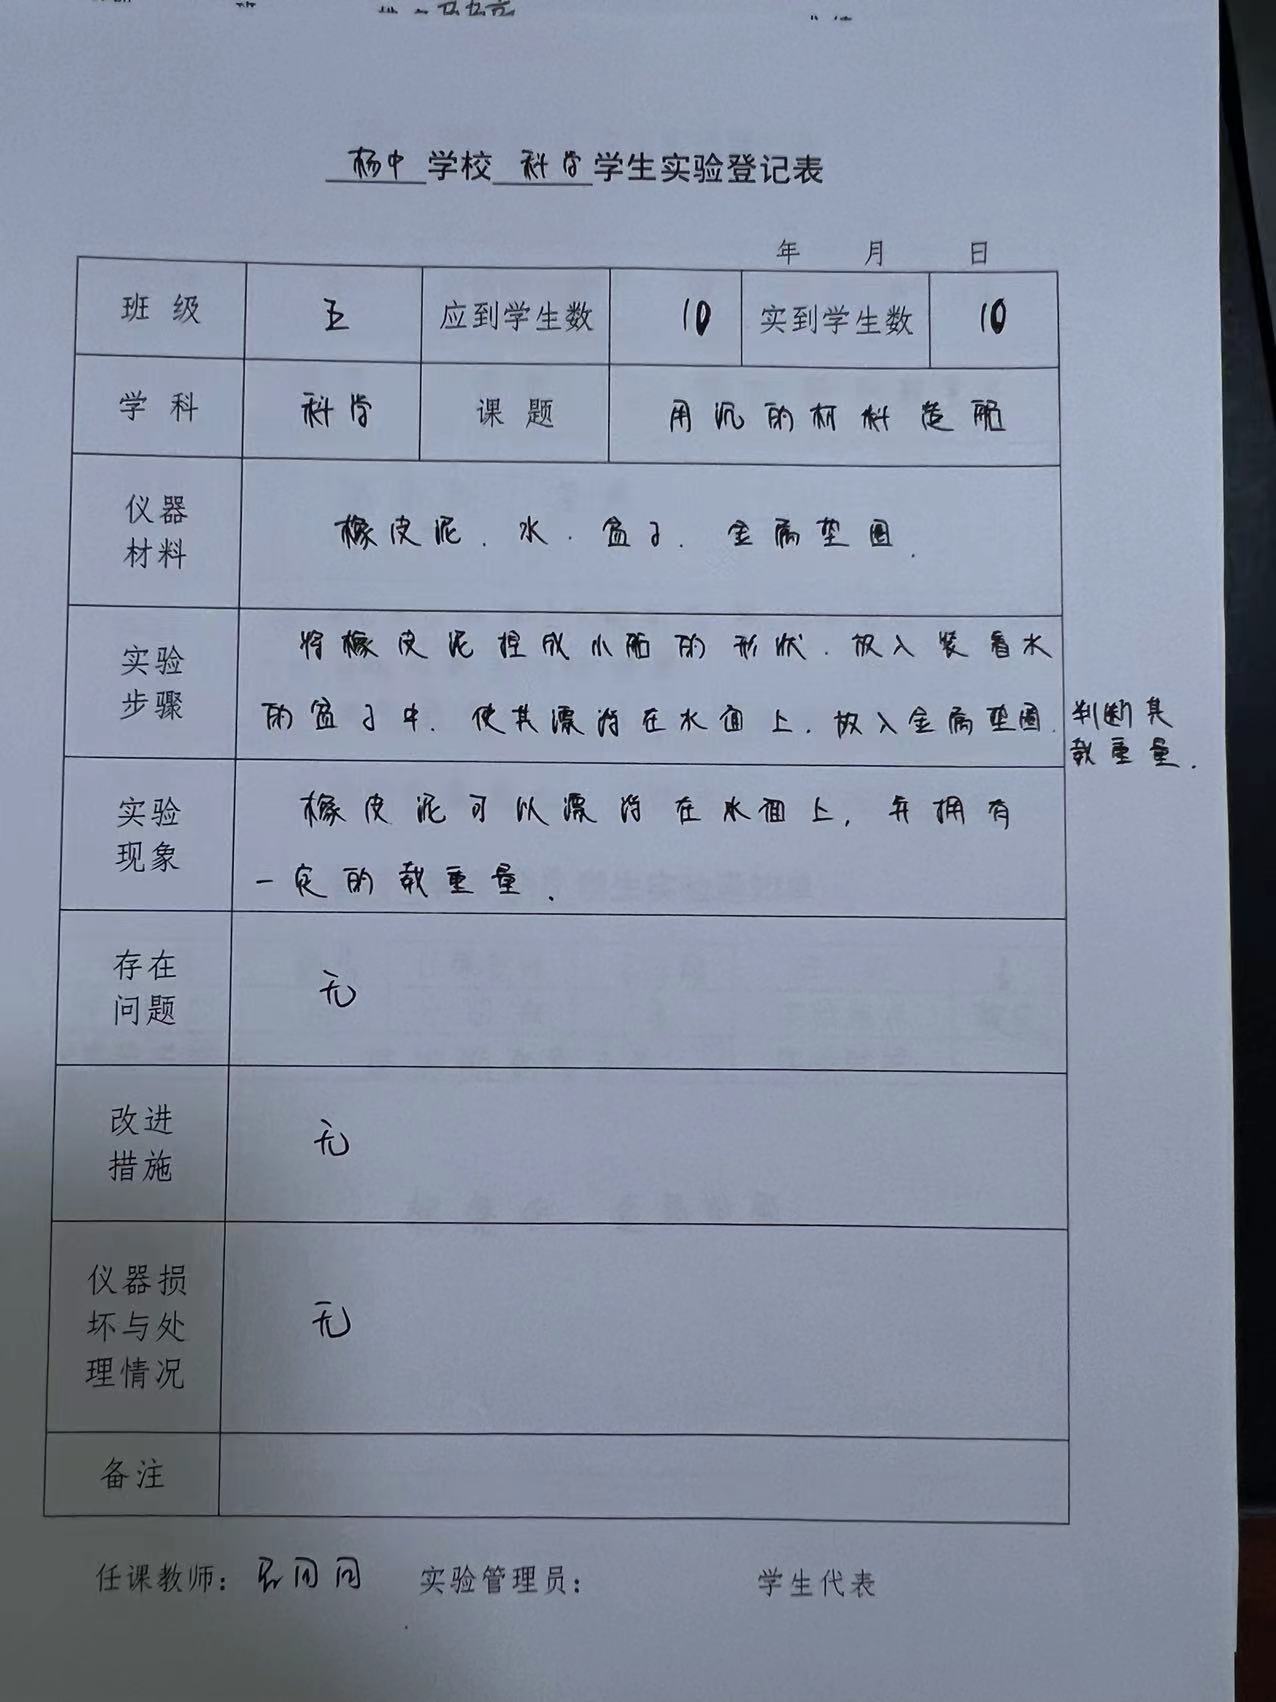 杨中学校 科学学生实验登记表
年 月 日
班级 五 应到学生数 10 实到学生数 10
学科 科学 课题 用沉的材料造船
仪器材料 橡皮泥、水、盆子、金属垫圈.
实验步骤 将橡皮泥捏成小船的形状.放入装着水
的盆子中.使其漂浮在水面上.放入金属垫圈.判断其
载重量.
实验现象 橡皮泥可以漂浮在水面上,并拥有
一定的载重量.
存在问题 无
改进措施 无
仪器损坏与处理情况 无
备注
任课教师: 实验管理员: 学生代表